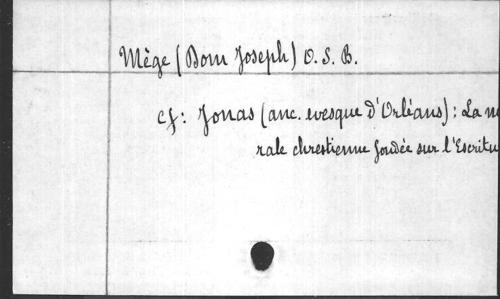 Mège (Dom Joseph) O. S. B.
cf: Jonas (anc. evesque d'Orléans) : La mo
rale chrestienne fondée sur l'Escritu